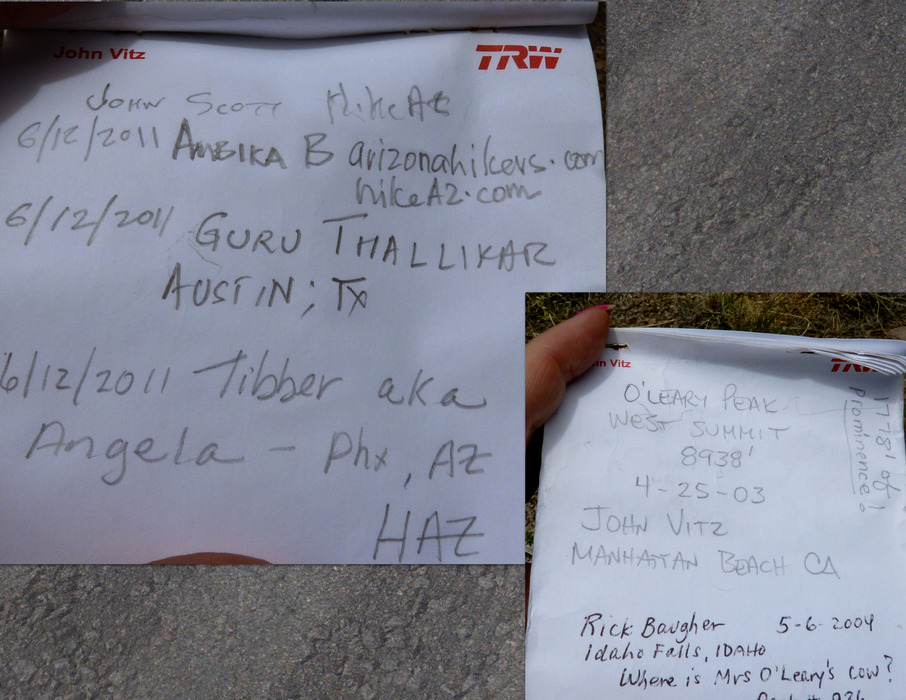 John Vitz TRW
JOHN SCOTT HikeAZ
6/12/2011 AMBIKA B arizonahikers.com
hikeAZ.com
6/12/2011 GURU THALLIKAR
AUSTIN; TX
6/12/2011 Tibber aka
Angela – Phx, AZ
HAZ
n Vitz TRW
O'LEARY PEAK
WEST SUMMIT
8938'
4-25-03
JOHN VITZ
MANHATTAN BEACH CA
1778' of
prominence!
Rick Baugher 5-6-2004
Idaho Falls, IDAHO
Where is Mrs O'Leary's cow?